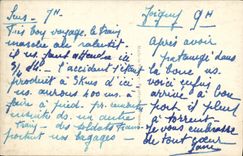 Sens - 7H
Très bon voyage, le train
marche au ralenti
il nous faut attendre ici
3/4 d'H. l'accident s'étant
produit à 3 Kms d'ici
ns aurons 400 m. à
faire à pied pr.
ensuite ds un autre
train - des soldats
portent nos bagages
Joigny 9H
Après avoir
pataugé dans
la boue ns
voici enfin
arrivés à bon
port il pleut
à torrent.
Je vous embrasse
de tout cœur